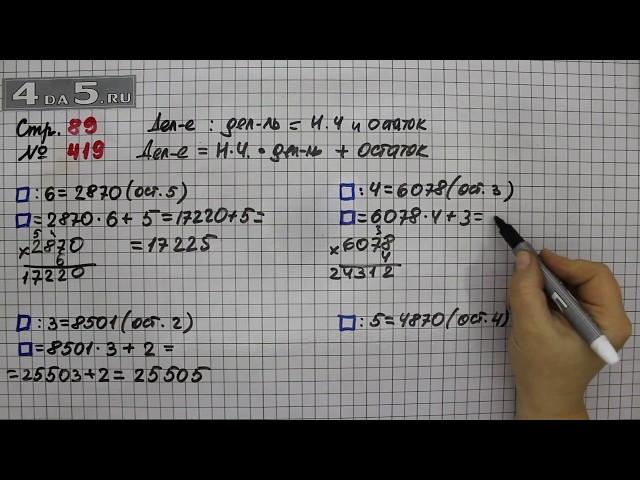 4 DA 5.RU
Стр. 89
№ 419
Дел-е : дел-ль = Н.Ч и остаток
Дел-е = Н.Ч. • дел-ль + остаток
□ : 6 = 2870 (ост. 5)
□ = 2870 · 6 + 5 = 17220 + 5 =
5 4
× 2870
6
17220
= 17225
□ : 3 = 8501 (ост. 2)
□ = 8501 · 3 + 2 =
= 25503 + 2 = 25505
□ : 4 = 6078 (ост. 3)
□ = 6078 · 4 + 3 =
3
× 6078
4
24312
□ : 5 = 4870 (ост. 4)